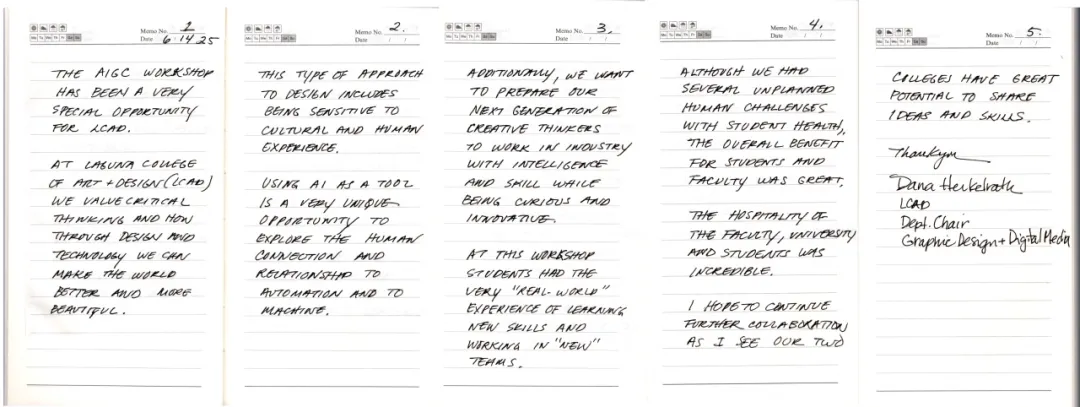 Memo No. 1
Mo Tu We Th Fr Sa Su
Date 6·14·25
THE AIGC WORKSHOP
HAS BEEN A VERY
SPECIAL OPPORTUNITY
FOR LCAD.
AT LAGUNA COLLEGE
OF ART + DESIGN (LCAD)
WE VALUE CRITICAL
THINKING AND HOW
THROUGH DESIGN AND
TECHNOLOGY WE CAN
MAKE THE WORLD
BETTER AND MORE
BEAUTIFUL.
Memo No. 2.
Mo Tu We Th Fr Sa Su
Date / /
THIS TYPE OF APPROACH
TO DESIGN INCLUDES
BEING SENSITIVE TO
CULTURAL AND HUMAN
EXPERIENCE.
USING AI AS A TOOL
IS A VERY UNIQUE
OPPORTUNITY TO
EXPLORE THE HUMAN
CONNECTION AND
RELATIONSHIP TO
AUTOMATION AND TO
MACHINE.
Memo No. 3.
Mo Tu We Th Fr Sa Su
Date / /
ADDITIONALLY, WE WANT
TO PREPARE OUR
NEXT GENERATION OF
CREATIVE THINKERS
TO WORK IN INDUSTRY
WITH INTELLIGENCE
AND SKILL WHILE
BEING CURIOUS AND
INNOVATIVE.
AT THIS WORKSHOP
STUDENTS HAD THE
VERY "REAL-WORLD"
EXPERIENCE OF LEARNING
NEW SKILLS AND
WORKING IN "NEW"
TEAMS.
Memo No. 4.
Mo Tu We Th Fr Sa Su
Date / /
ALTHOUGH WE HAD
SEVERAL UNPLANNED
HUMAN CHALLENGES
WITH STUDENT HEALTH,
THE OVERALL BENEFIT
FOR STUDENTS AND
FACULTY WAS GREAT.
THE HOSPITALITY OF
THE FACULTY, UNIVERSITY
AND STUDENTS WAS
INCREDIBLE.
I HOPE TO CONTINUE
FURTHER COLLABORATION
AS I SEE OUR TWO
Memo No. 5.
Mo Tu We Th Fr Sa Su
Date / /
COLLEGES HAVE GREAT
POTENTIAL TO SHARE
IDEAS AND SKILLS.
Thankyou
Dana Herkelrath
LCAD
Dept. Chair
Graphic Design + Digital Media